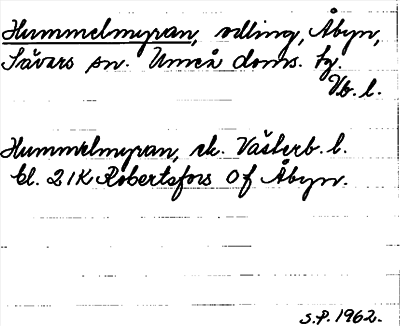 Hummelmyran, odling, Åbyn,
Sävars sn. Umeå doms. hg.
Vb. l.
Hummelmyran, ek. Västerb. l.
bl. 21K Robertsfors Of Åbyn.
S.P. 1962.